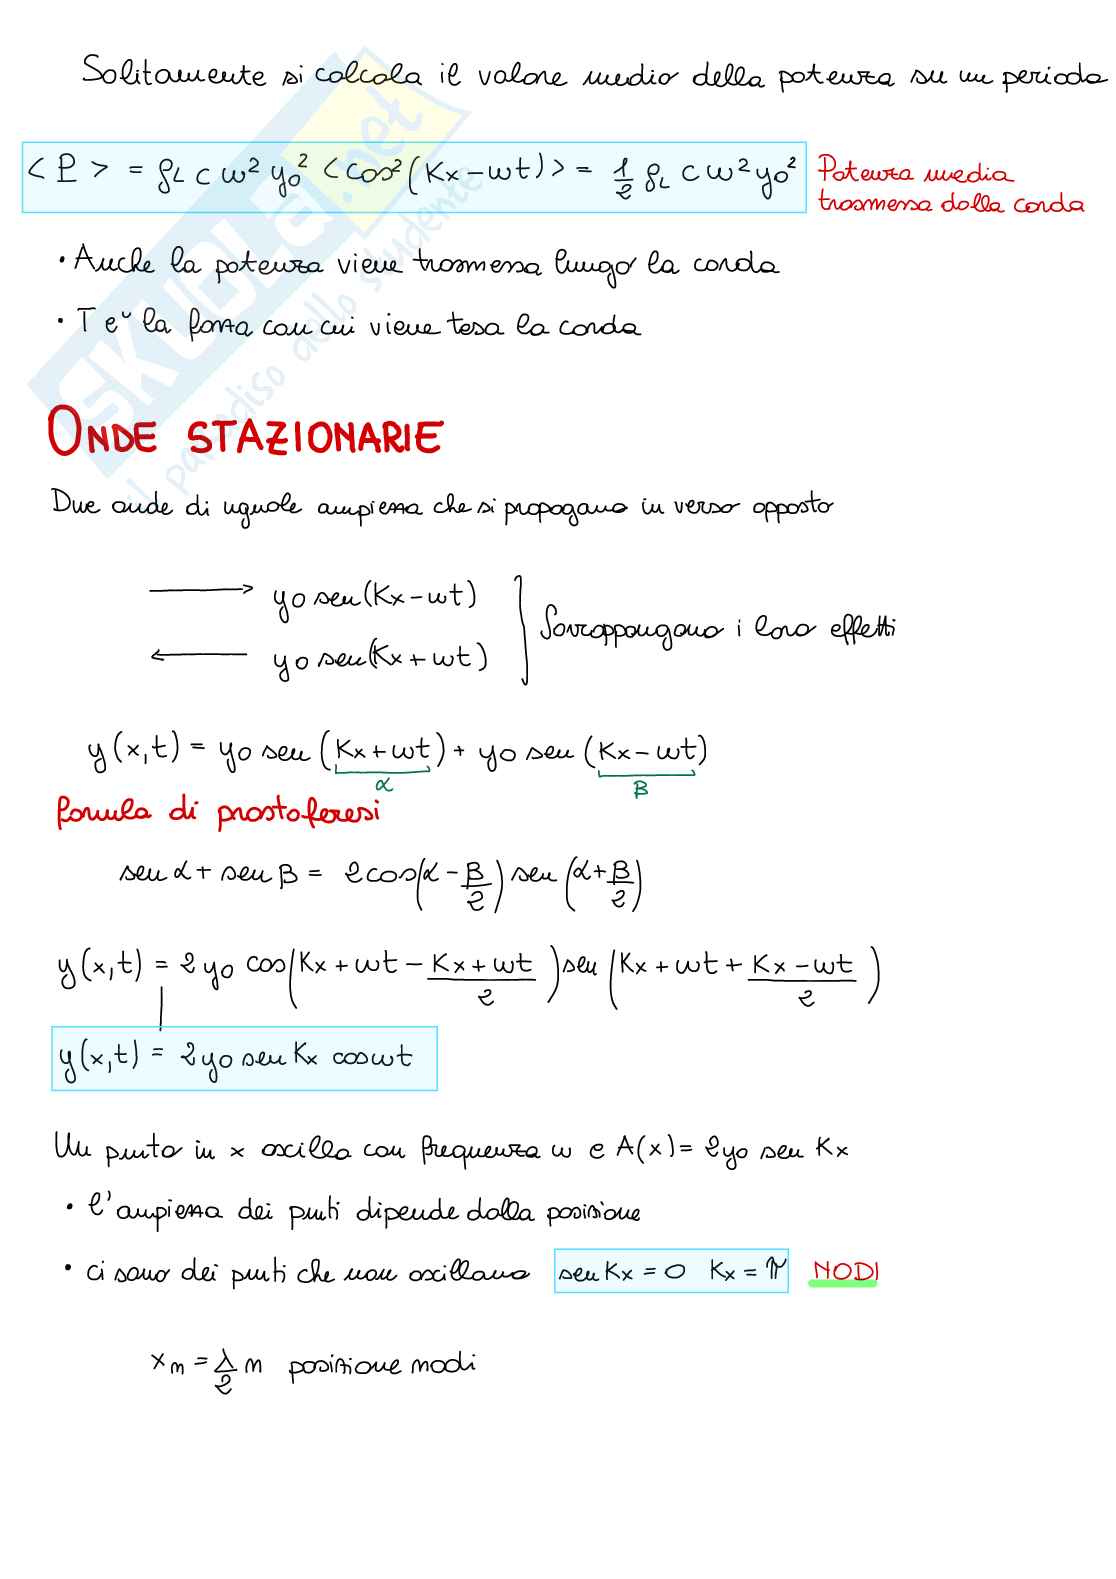 Solitamente si calcola il valore medio della potenza su un periodo
< P > = ρL c ω² y0² <cos²(Kx-ωt)> = 1/2 ρL c ω² y0²
Potenza media
trasmessa dalla corda
• Anche la potenza viene trasmessa lungo la corda
• T e˘ la forza con cui viene tesa la corda
ONDE STAZIONARIE
Due onde di uguale ampiezza che si propagano in verso opposto
→ y0 sen(Kx-ωt)
← y0 sen(Kx+ωt)
Sovrappongono i loro effetti
y(x,t) = y0 sen (Kx+ωt) + y0 sen (Kx-ωt)
α β
formula di prostoferesi
sen α + sen β = 2cos(α - β/2) sen (α+β/2)
y(x,t) = 2 y0 cos(Kx + ωt - Kx+ωt/2) sen (Kx + ωt + Kx-ωt/2)
y(x,t) = 2 y0 sen Kx cos ωt
Un punto in x oscilla con frequenza ω e A(x) = 2y0 sen Kx
• l'ampiezza dei punti dipende dalla posizione
• ci sono dei punti che non oscillano sen Kx = 0 Kx = π NODI
xm = λ/2 m posizione nodi
SKUOLA.net
il paradiso dello studente